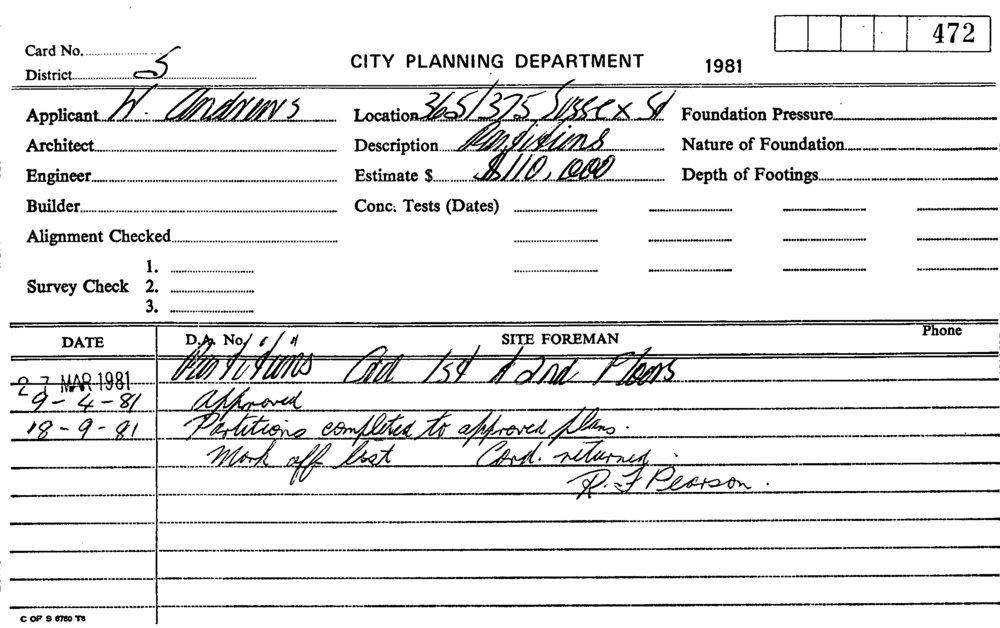 472
Card No.
CITY PLANNING DEPARTMENT 1981
District 5
Applicant W. Andrews Location 365/375 Sussex St Foundation Pressure
Architect Description Partitions Nature of Foundation
Engineer Estimate $ $110,000 Depth of Footings
Builder Conc. Tests (Dates)
Alignment Checked
1.
Survey Check 2.
3.
DATE D.A. No. SITE FOREMAN Phone
27 MAR 1981 Partitions Gd 1st & 2nd Floors
9-4-81 Approved
18-9-81 Partitions completed to approved plans.
Mark off list Card. returned.
R. F Pearson.
C OF S 6760 T6